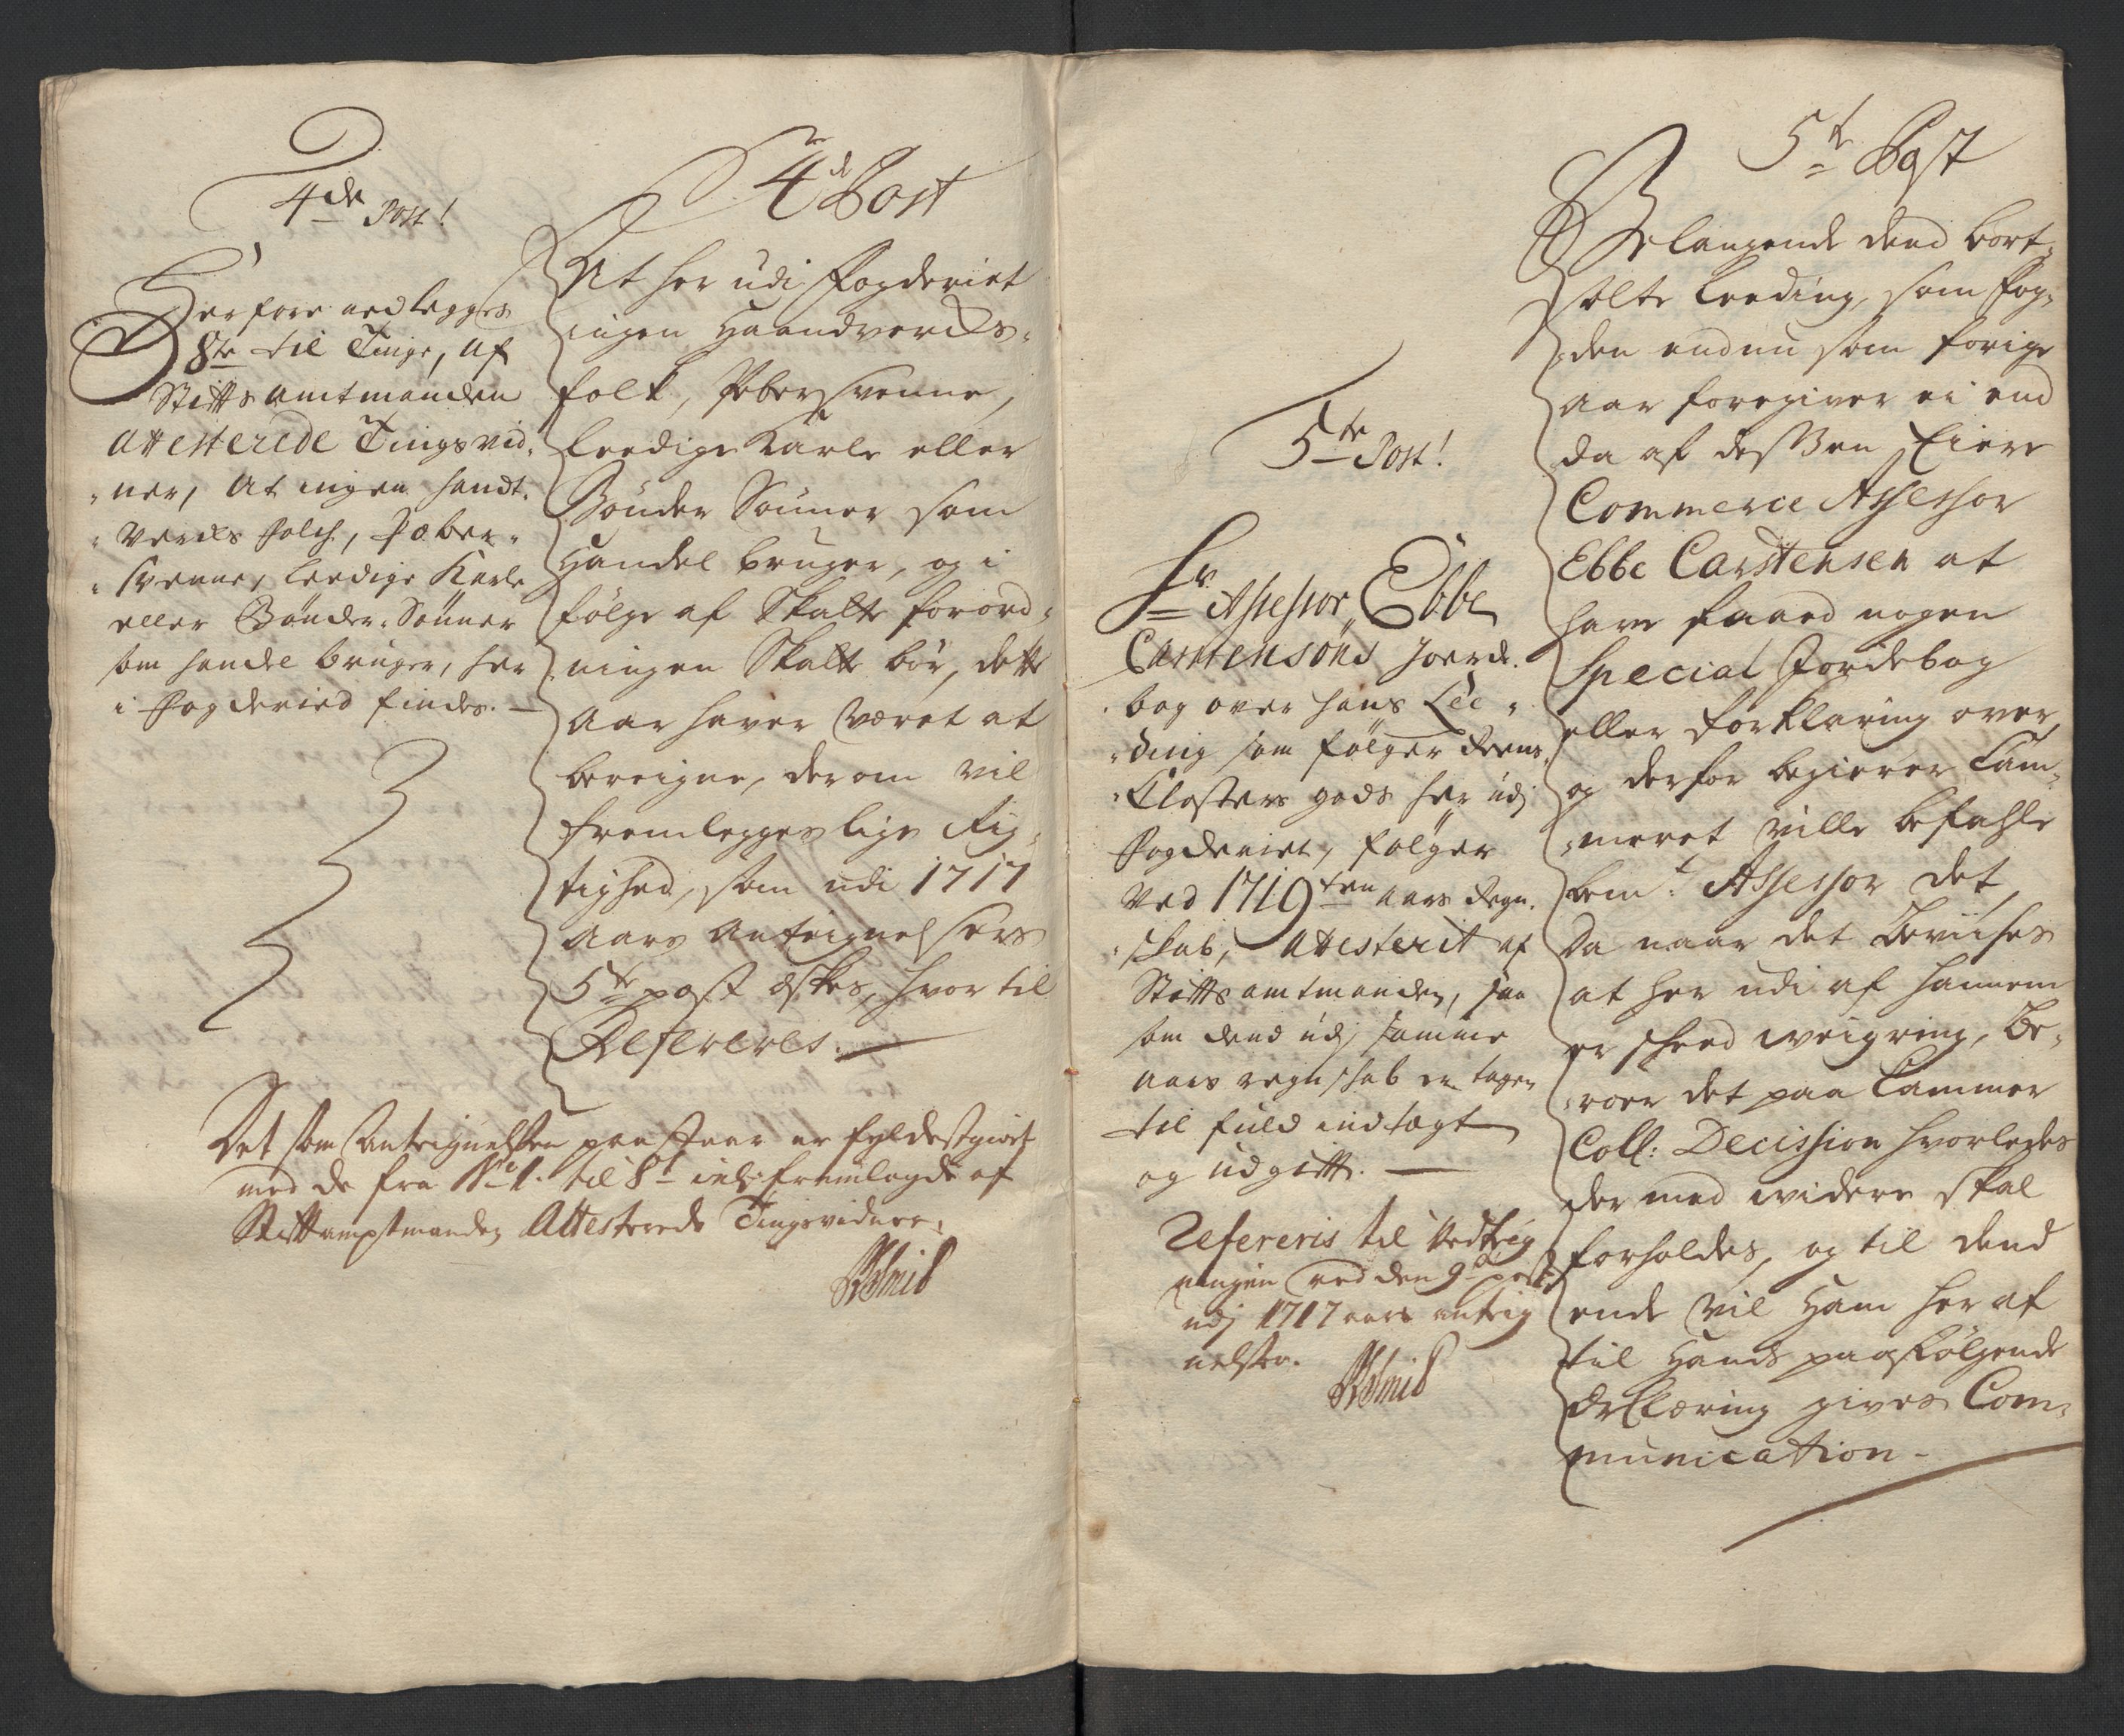 4de Post!
Herfore nedlegges
8te til Tinge, af
Stiftsamtmanden
Attesterede Tingsvid¬
ner, At ingen handt¬
vercks folch, Peber¬
svenne, leedige Karle
eller Bønder-Sønner
som handel bruger, her
i fogderied findes. —
4de Post
At her udi Fogderiet
ingen Haandvercks¬
folk, Pebersvenne,
leedige Karle eller
Bønder Sønner som
Handel bruger, og i
følge af Skatte forord¬
ningen Skatte bør, dette
Aar haver været at
bereigne, derom vil
fremlegges lige Rig¬
tighed, som udi 1717
Aars Antegnelsers
5te post æskes, hvortil
Refereres. —
Det som Antegnelsen paastaar er fyldestgiort
med de fra No 1. til 8t incl: fremlagde af
Stiftampstmanden Attesterede Tingsvidner.
5te Post!
Hr Assessor Ebbe
Carstensøns Joerde¬
bog over hans Lee¬
ding som følger Reens
Closters gods her udj
fogderiet, følger
ved 1719ten aars Regn¬
skab, Attesterit af
Stiftsamtmanden, saa
som dend udj samme
aars regnskab er tagen
til fuld indtægt
og udgift. —
Refereris til Vedteg
ningen ved den 9de post
udj 1717 aars anteg
nelser.
5te Post
Belangende dend bort¬
solte Leeding, som Fog¬
den endnu som forige
Aar foregiver ei end
da af desβen Eiere
Commerce Assessor
Ebbe Carstensen at
have faaed nogen
Special Jordebog
eller forklaring over,
og derfor begierer Cam¬
meret ville befahle
bemt: Assessor det,
Da naar det Beviises
at her udi af hannem
er skeed weigring, Be¬
roer det paa Cammer
Coll: Decission hvorledes
der med widere skal
forholdes, og til dend
ende vil Ham her af
til Hands paafølgende
Erklæring gives Com¬
munication. —